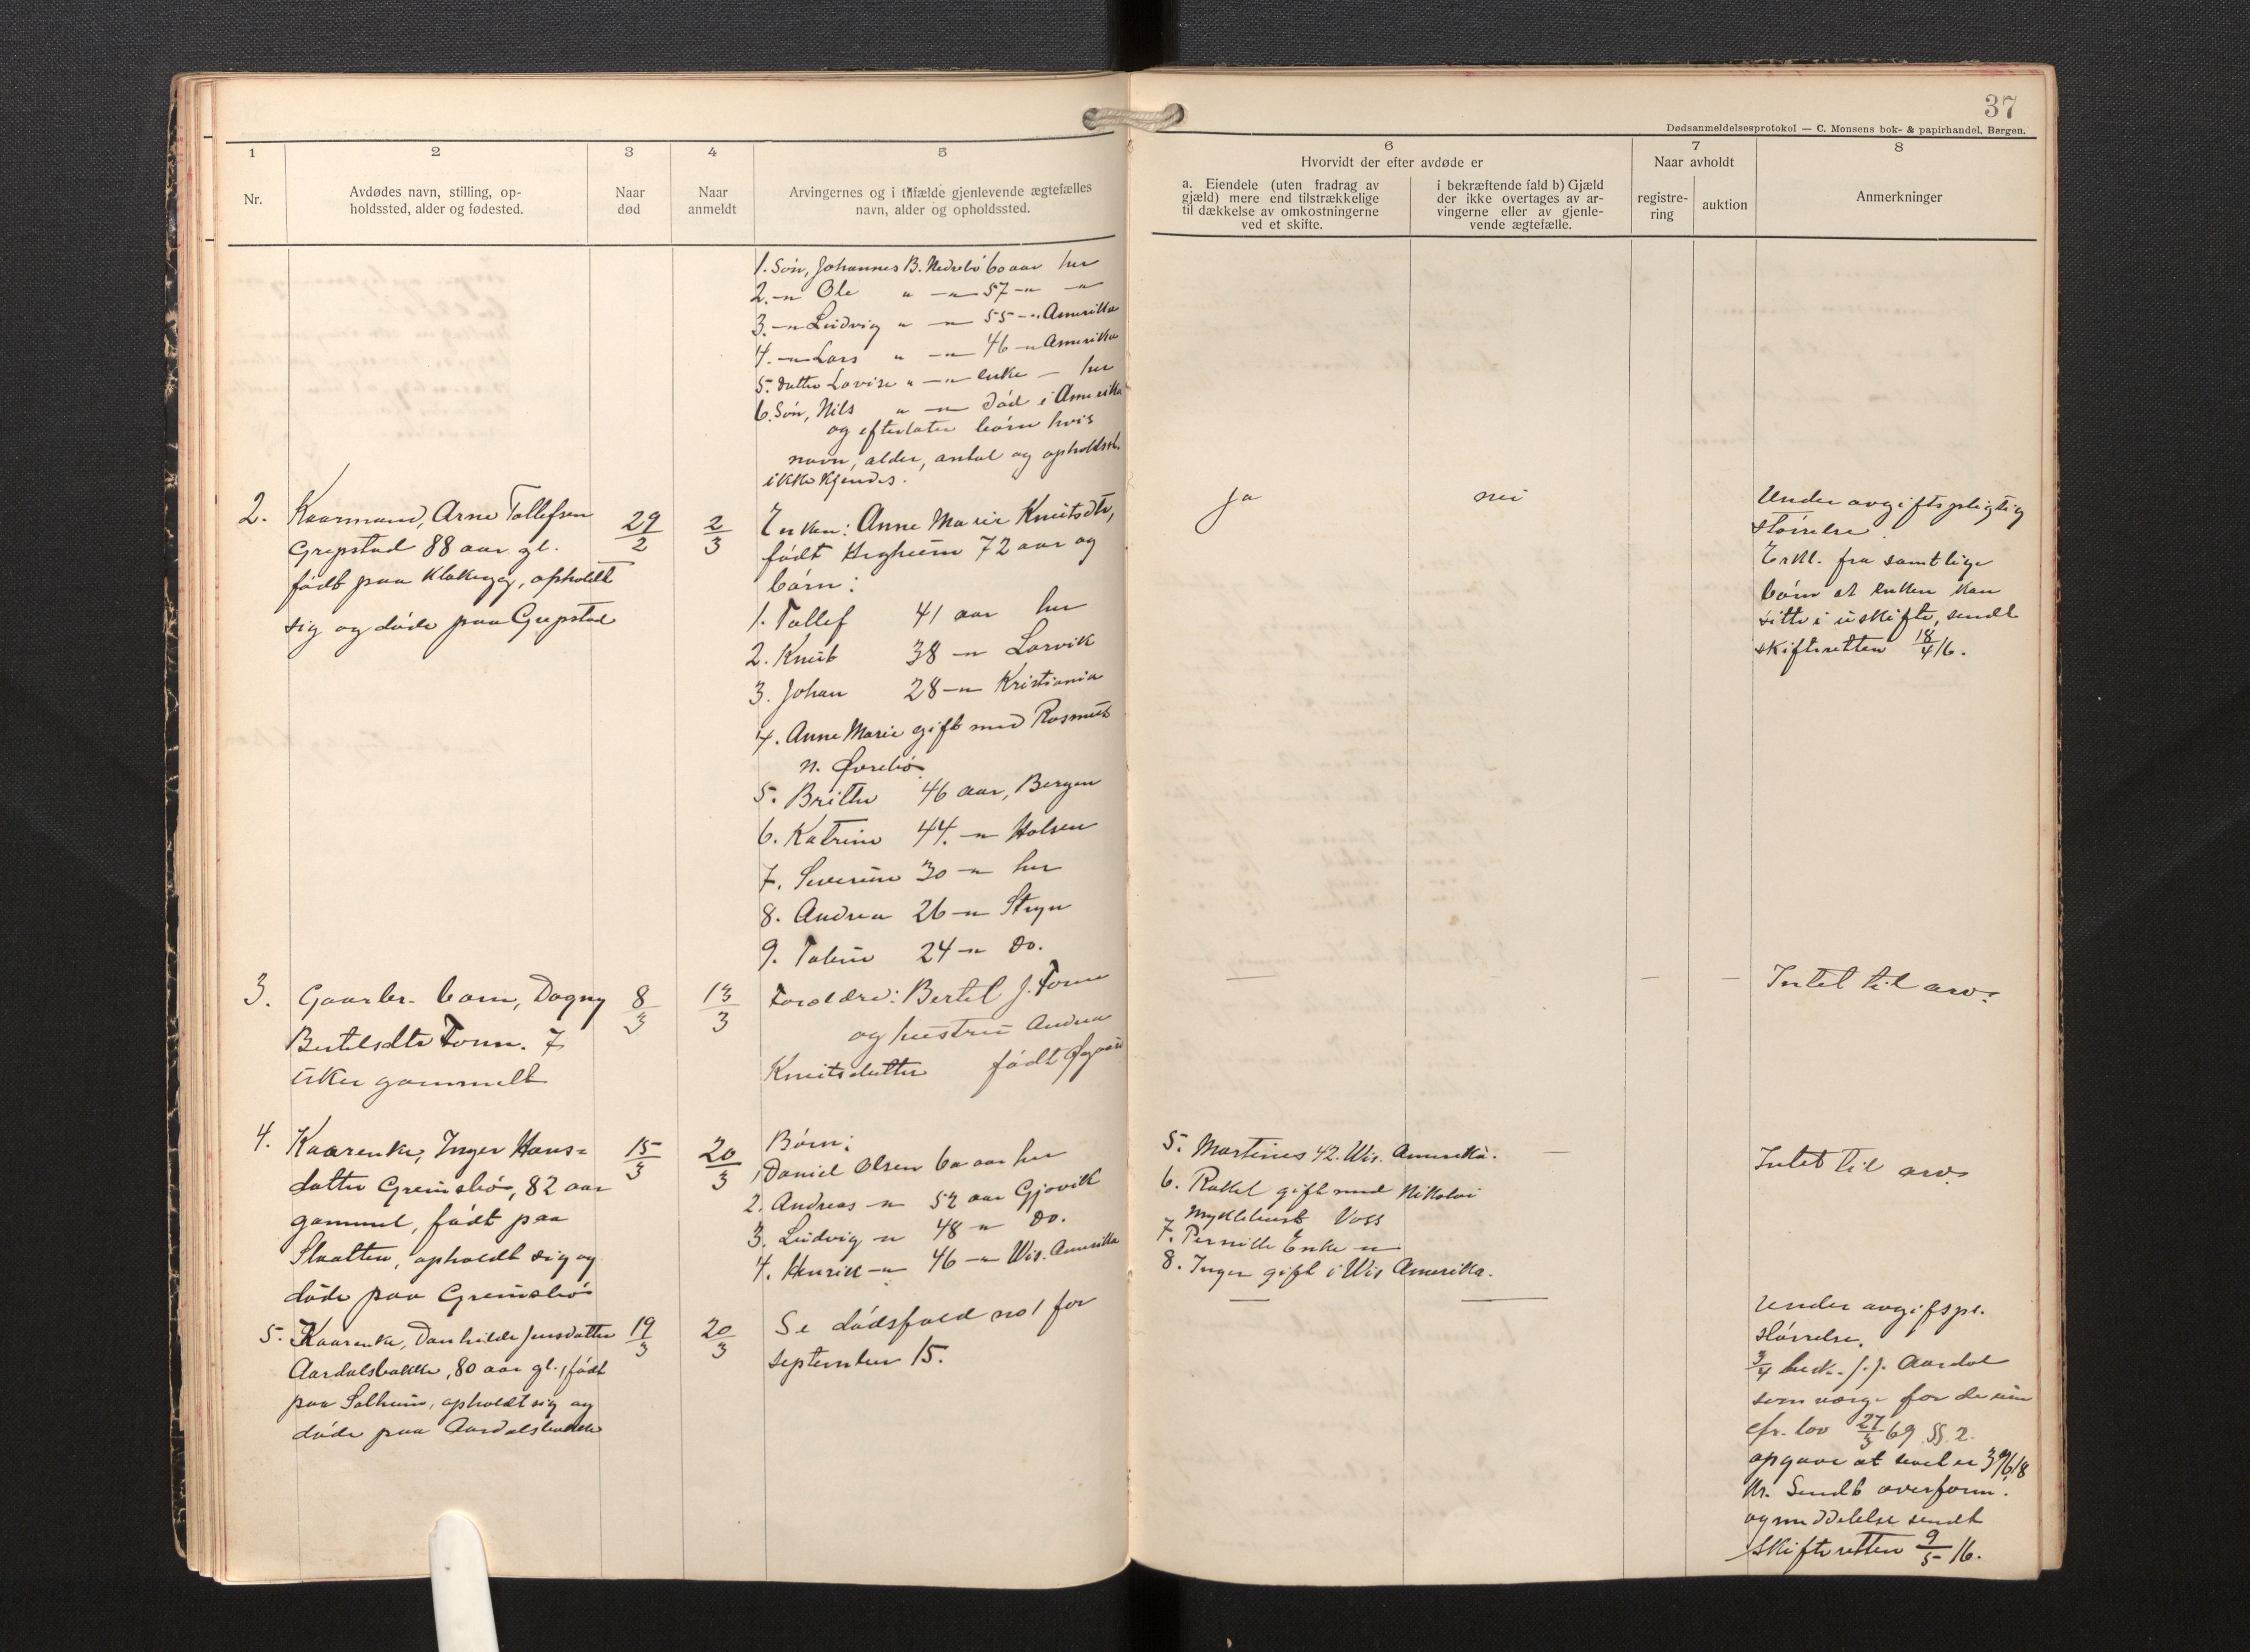 37
Dødsanmeldelsesprotokol — C. Monsens bok- & papirhandel, Bergen.
1
2
3
4
5
6
7
8
Nr.
Avdødes navn, stilling, op-
holdssted, alder og fødested.
Naar
død
Naar
anmeldt
Arvingernes og i tilfælde gjenlevende ægtefælles
navn, alder og opholdssted.
Hvorvidt der efter avdøde er
a. Eiendele (uten fradrag av
gjæld) mere end tilstrækkelige
til dækkelse av omkostningerne
ved et skifte.
i bekræftende fald b) Gjæld
der ikke overtages av ar-
vingerne eller av gjenle-
vende ægtefælle.
Naar avholdt
registre-
ring
auktion
Anmerkninger
1. Søn, Johannes B. Nedrebö 60 aar her
2. -"- Ole " -"- 57 -"- -"-
3. -"- Ludvig " -"- 55 -"- Amerikka
4. -"- Lars " -"- 46 -"- Amerikka
5. datter Lovise " -"- enke — her
6. Søn, Nils " -"- død i Amerikka
og efterlater børn hvis
navn, alder, antal og opholdsst.
ikke kjendes.
2. Kaarmand, Arne Tollefsen
Grepstad 88 aar gl.
født paa Klakegg, opholdt
sig og døde paa Grepstad
29/2
2/3
Enken: Anne Marie Knutsdtr,
født Hegheim 72 aar og
børn:
1. Tollef 41 aar her
2. Knut 38 -"- Larvik
3. Johan 28 -"- Kristiania
4. Anne Marie gift med Rasmus
N. Øvrebø
5. Brithe 46 aar, Bergen
6. Katrine 44. -"- Holsen
7. Severine 30 -"- her
8. Andrea 26 -"- Stryn
9. Taline 24 -"- do.
Ja
nei
Under avgiftspligtig
størrelse.
Erkl. fra samtlige
børn at enken kan
sitte i uskifte, sendt
skifteretten 18/4 16.
3. Gaarbr. barn, Dagny
Bertelsdtr Tonn. 7
uker gammelt
8/3
13/3
Foreldre: Bertel J. Tonn
og hustru Andrea
Knutsdatter født
— — — —
Intet til arv.
4. Kaarenke, Inger Hans=
datter Grimsbö, 82 aar
gammel, født paa
Slaatten, opholdt sig og
døde paa Grimsbö
15/3
20/3
Børn:
1. Daniel Olsen 60 aar her
2. Andreas -"- 52 aar Gjøvik
3. Ludvig -"- 48 -"- do.
4. Henrik -"- 46 -"- Wis. Amerikka
5. Martines 42. Wis. Amerika.
6. Rakel gift med Nikolai
Myklebust Voss
7. Pernille Enke -"-
8. Inger gift i Wis Amerikka.
—
Intet til arv.
5. Kaarenke, Danhilde Jensdatter
Aardalsbakke, 80 aar gl., født
paa Solheim, opholdt sig og
døde paa Aardalsbakke
19/3
20/3
Se dødsfald no 1 for
september 15.
— —
Under avgifspl.
størrelse.
3/4 besk. J. J. Aardal
som værge for
cfr. lov 27/3 69 §§ 2.
opgave at
kr. Sendt overform.
og meddelelse sendt
skifteretten 9/5 16.